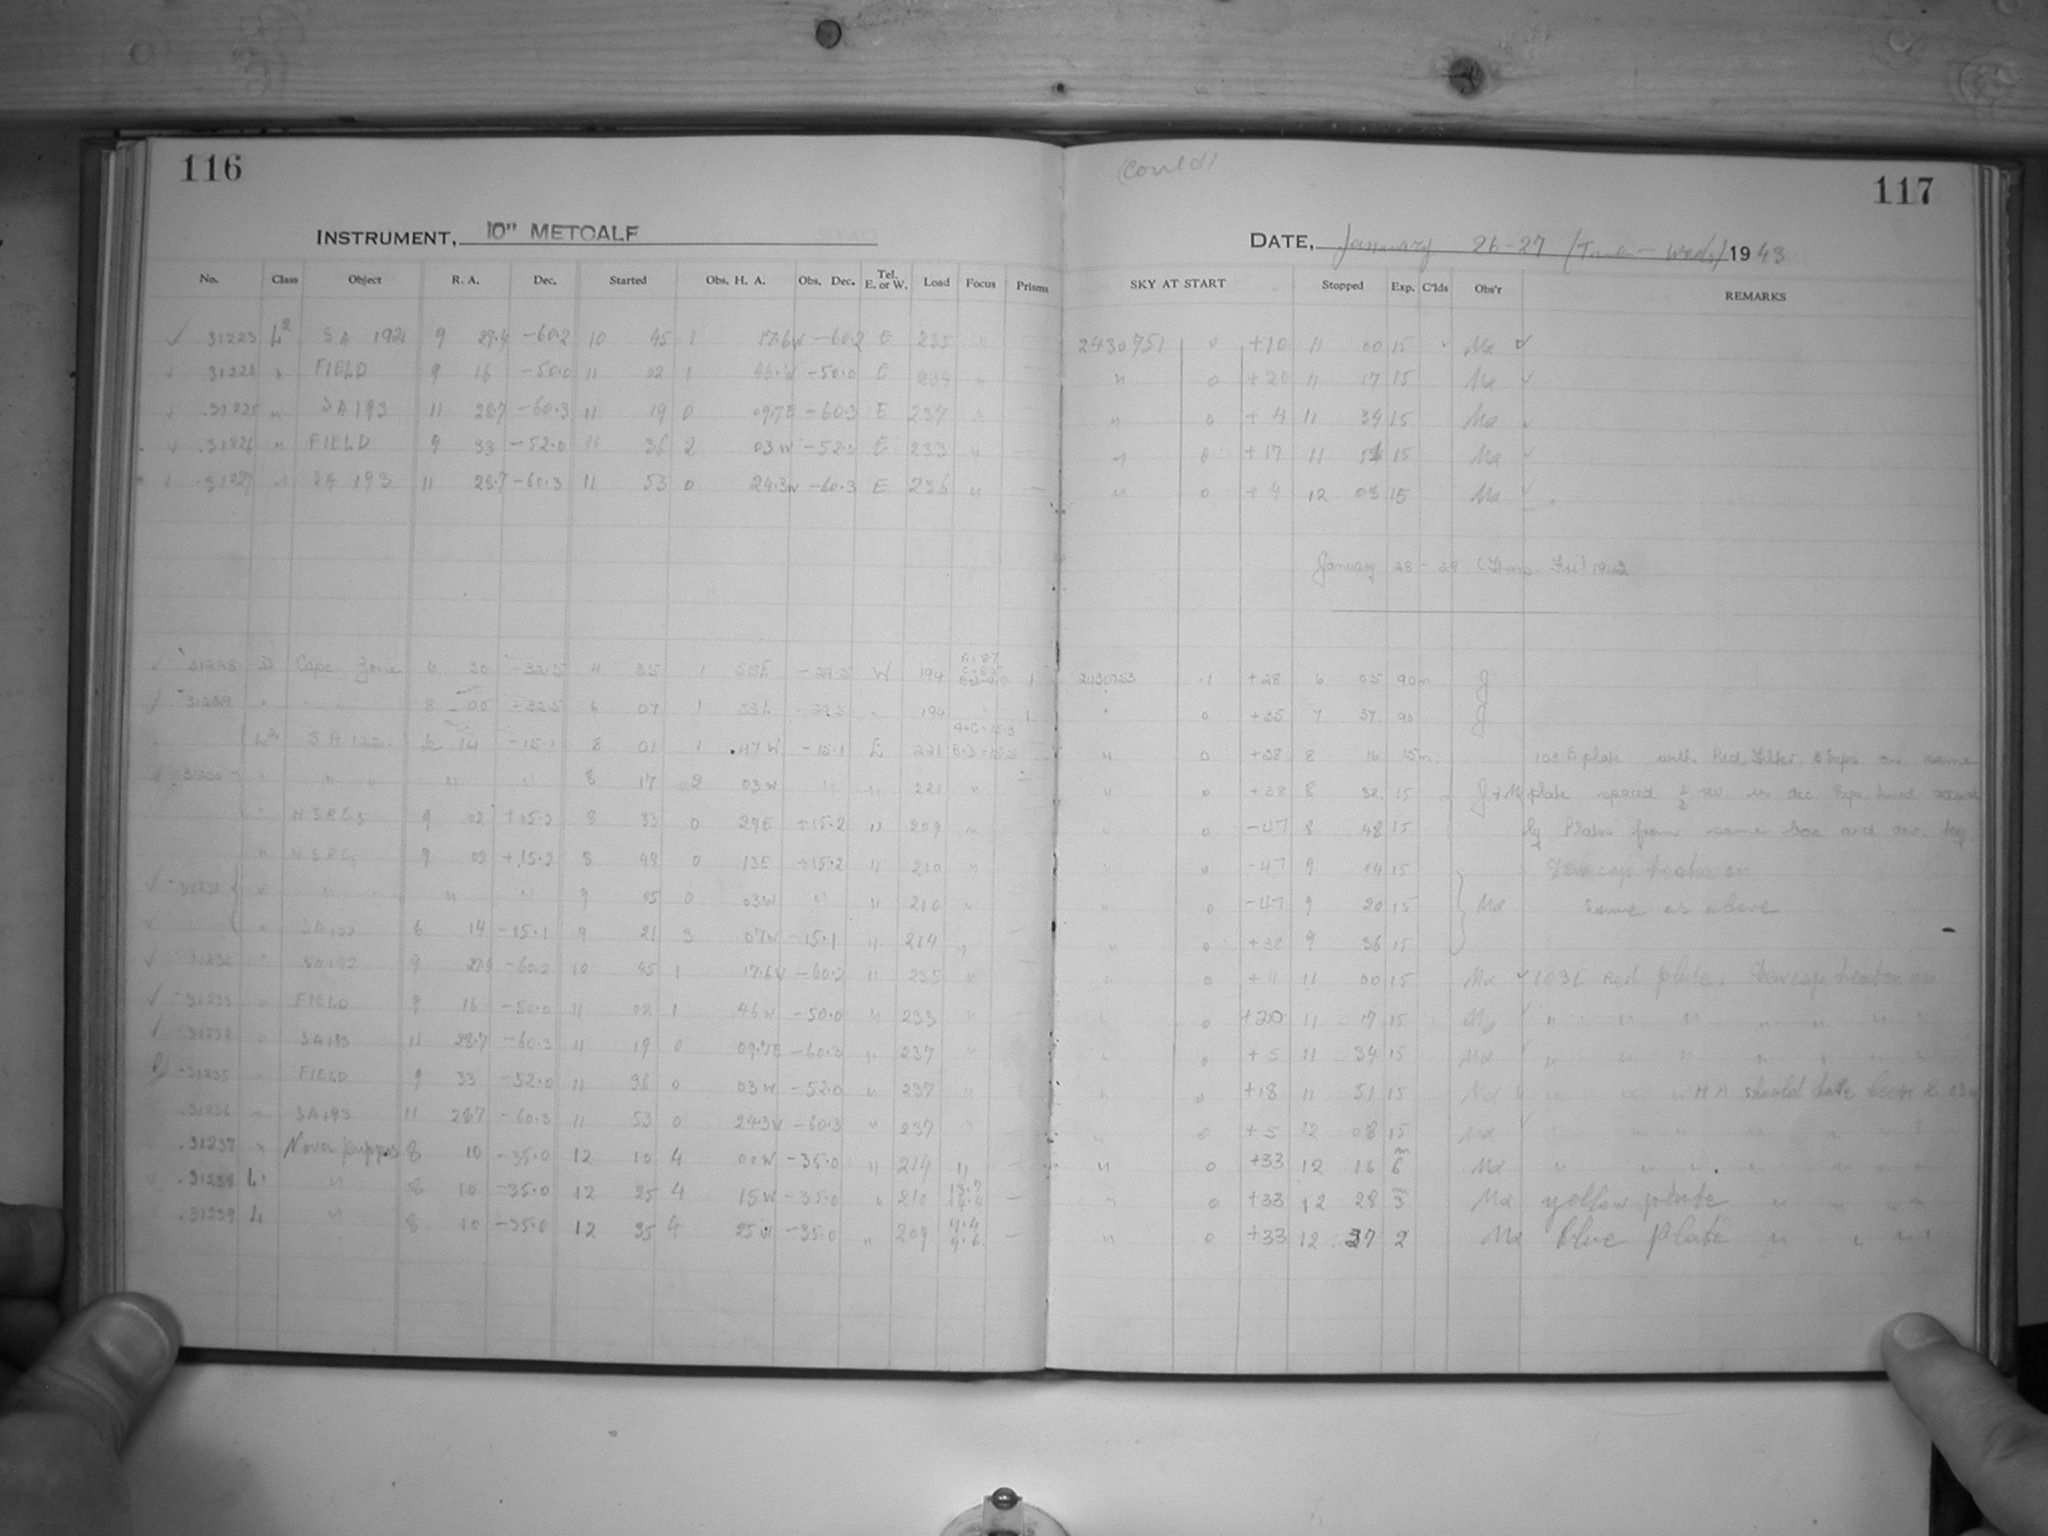 116
(Contd)
117
INSTRUMENT, 10" METCALF
DATE, January 26-27 (Tue - Weds) 1943
No. Class Object R. A. Dec. Started Obs. H. A. Obs. Dec. Tel. E. or W. Load Focus Prisms SKY AT START Stopped Exp. C'lds Obs'r REMARKS
31223 L2 SA 192 9 27.4 -60.2 10 45 1 17.6W -60.2 E 235 2430751 0 +10 11 00 15 Md
31224 " FIELD 9 16 -50.0 11 02 1 46.W -50.0 E 234 " 0 +20 11 17 15 Md
31225 " SA 193 11 28.7 -60.3 11 19 0 09.7E -60.3 E 237 " 0 +4 11 34 15 Md
31226 " FIELD 9 33 -52.0 11 36 2 03W -52.0 E 233 " 0 +17 11 51 15 Md
31227 " SA 193 11 28.7 -60.3 11 53 0 24.3W -60.3 E 236 " 0 +4 12 08 15 Md
January 28-29 (Thurs - Fri) 1943
31228 D Cape Zone 6 30 -32.5 4 35 1 55E W 194 1 2430753 +28 6 05 90m J
31229 " " " 8 05 -32.5 6 07 1 53E " 194 1 " 0 +35 7 37 90 J
L2 SA 6 14 -15.1 8 01 1 47W -15.1 E 221 " 0 +38 8 16 15m 103 E plate with Red Filter. on same
31230 " " " " " 8 17 2 03W " " 221 " " 0 +38 8 32 15 J+Md plate spaced 1/2 in dec.
" 9 02 +15.2 8 33 0 29E +15.2 " 209 " " 0 -47 8 48 15 Plates from same box and
" 9 02 +15.2 8 49 0 13E +15.2 " 210 " " 0 -47 9 04 15 Dewcap heater on
31231 " " " " 9 05 0 03W " " 210 " " 0 -47 9 20 15 Md same as above
" SA 122 6 14 -15.1 9 21 3 07W -15.1 " 214 " " 0 +38 9 36 15
31232 " SA 192 9 27.4 -60.2 10 45 1 17.6W -60.2 " 235 " " 0 +11 11 00 15 Md 103E Red plate. Dewcap heater on
31233 " FIELD 9 16 -50.0 11 02 1 46W -50.0 " 233 " " 0 +20 11 17 15 Md " " " " " "
31234 " SA 193 11 28.7 -60.3 11 19 0 09.7E -60.3 " 237 " " 0 +5 11 34 15 Md " " " " " "
31235 " FIELD 9 33 -52.0 11 36 0 03W -52.0 " 237 " " 0 +18 11 51 15 Md " " " " HA should have been 2 03W
31236 " SA 193 11 28.7 -60.3 11 53 0 24.3W -60.3 " 237 " " 0 +5 12 08 15 Md " " " " " "
31237 " Nova puppis 8 10 -35.0 12 10 4 00W -35.0 " 214 " " 0 +33 12 16 6m Md " " " " " "
31238 L " 8 10 -35.0 12 25 4 15W -35.0 " 210 " 0 +33 12 28 3m Md yellow plate " " "
31239 L " 8 10 -35.0 12 35 4 25W -35.0 " 209 9.4 9.6 " 0 +33 12 37 2 Md Blue plate " " "